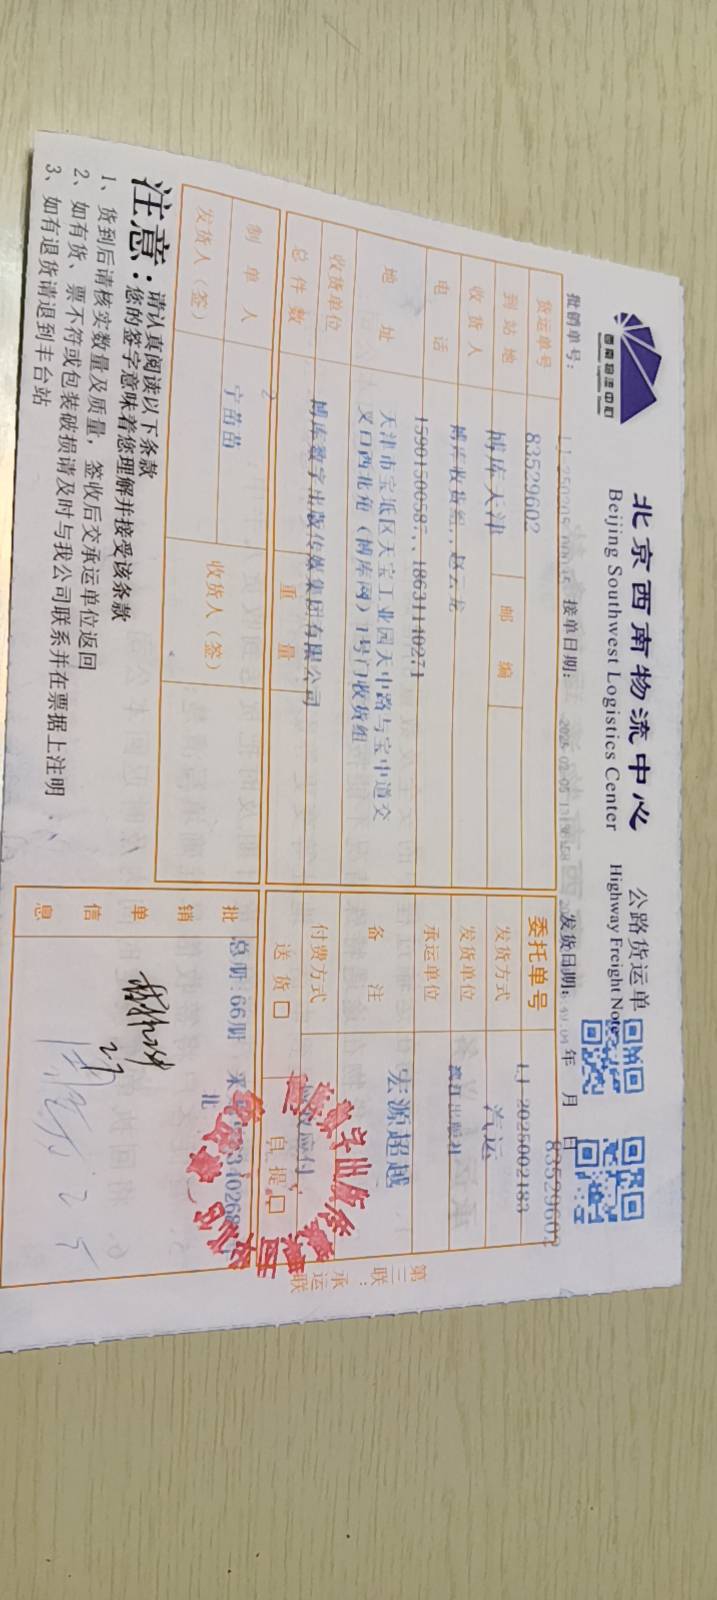 西南物流中心
北京西南物流中心
Beijing Southwest Logistics Center
公路货运单
Highway Freight Note
批销单号：
接单日期：
发货日期： 年 月 日
83529602
货运单号 83529602
委托单号 LJ-2025002183
到站地 博库天津 邮编
发货方式 汽运
收货人 博库收货组，赵云龙
发货单位 漓江出版社
电话 15901500587、18631140271
承运单位
地址 天津市宝坻区天宝工业园天中路与宝中道交
叉口西北角（博库网）1号门收货组
备注 宏源超越
收货单位 博库数字出版传媒集团有限公司
付费方式 应付
总件数 2 重量
送货 自提
制单人 宁苗苗
发货人（签） 收货人（签）
批销单信息
总册:66册
北
第三联：承运联
注意：请认真阅读以下条款
您的签字意味着您理解并接受该条款
1、货到后请核实数量及质量，签收后交承运单位返回
2、如有货、票不符或包装破损请及时与我公司联系并在票据上注明
3、如有退货请退到丰台站